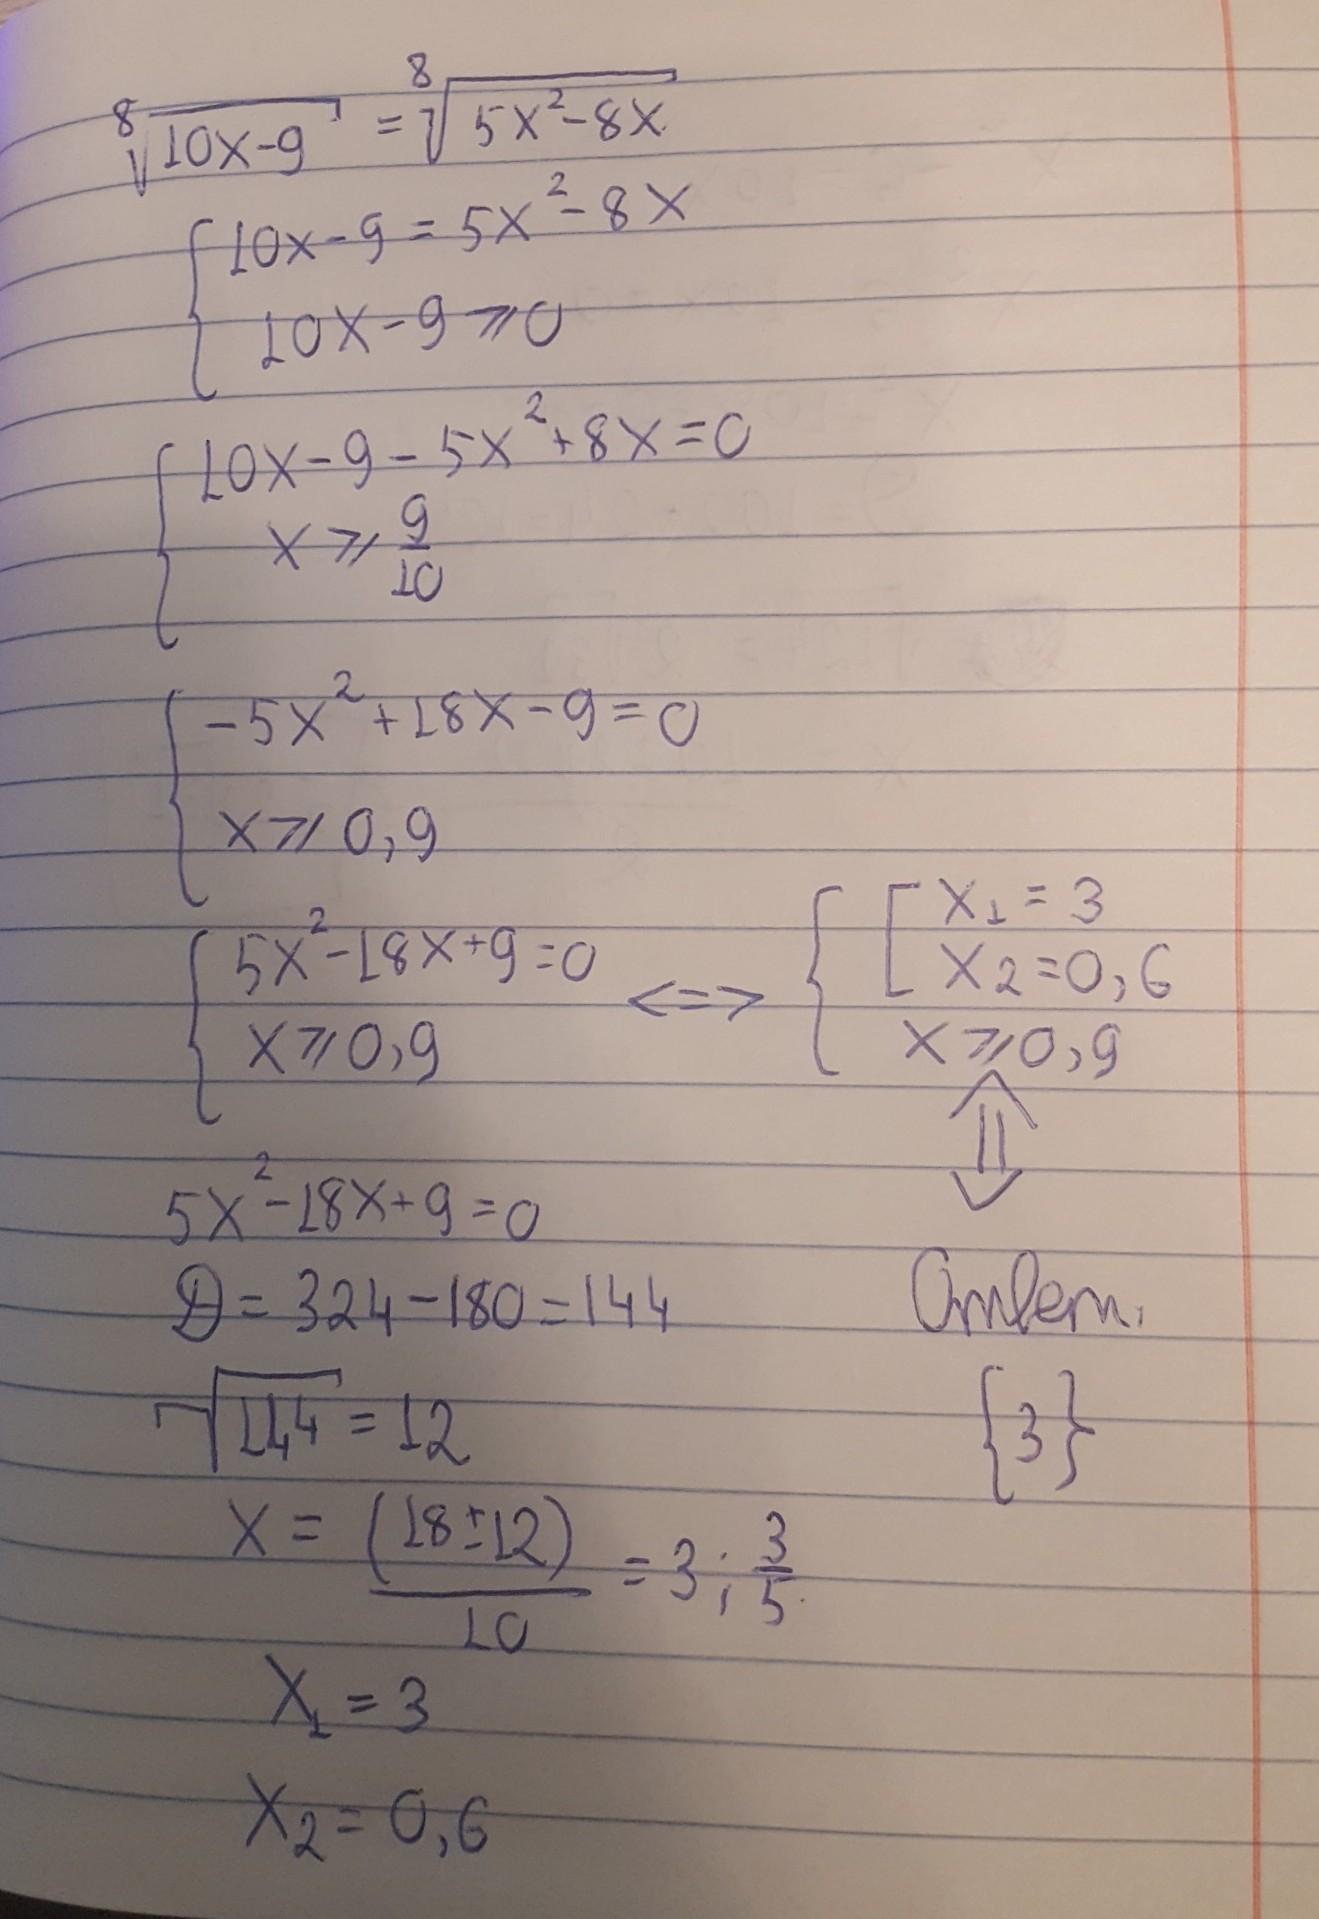 ⁸√(10x-9) = ⁸√(5x²-8x)
{ 10x-9 = 5x²-8x
10x-9 ⩾ 0
{ 10x-9-5x²+8x=0
x ⩾ 9/10
{ -5x²+18x-9=0
x ⩾ 0,9
{ 5x²-18x+9=0 <=> { [ x₁ = 3
x₂=0,6
x ⩾ 0,9 x ⩾ 0,9
⇕
5x²-18x+9=0
D = 324-180=144 Ответ.
√144 = 12 {3}
x = (18±12)/10 = 3; 3/5
x₁ = 3
x₂ = 0,6